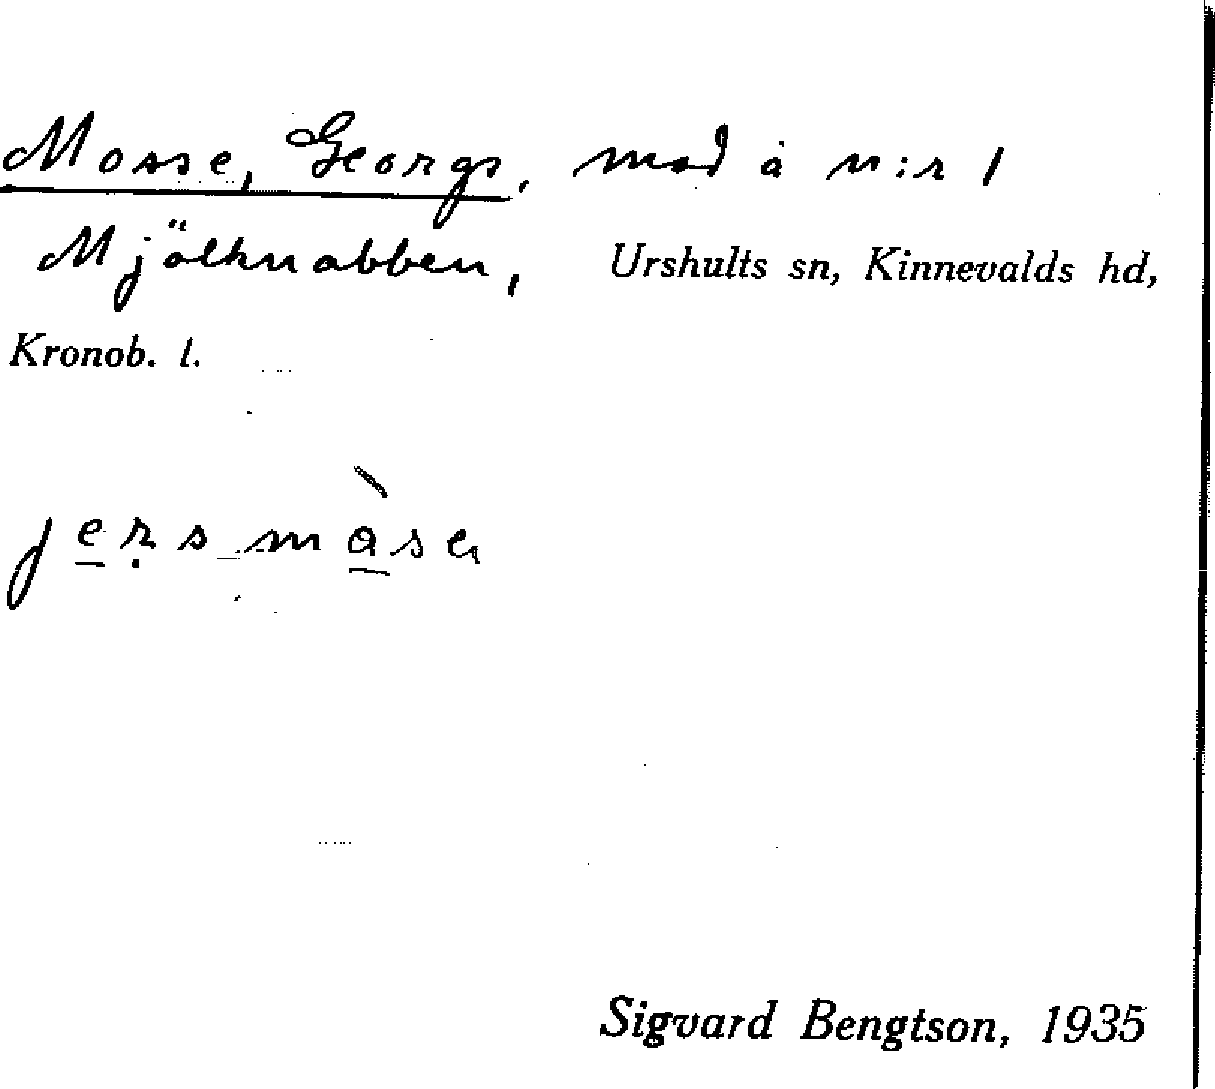 Mosse, Georgs, mad å n:r 1
Mjölknabben, Urshults sn, Kinnevalds hd,
Kronob. l.
Sigvard Bengtson, 1935